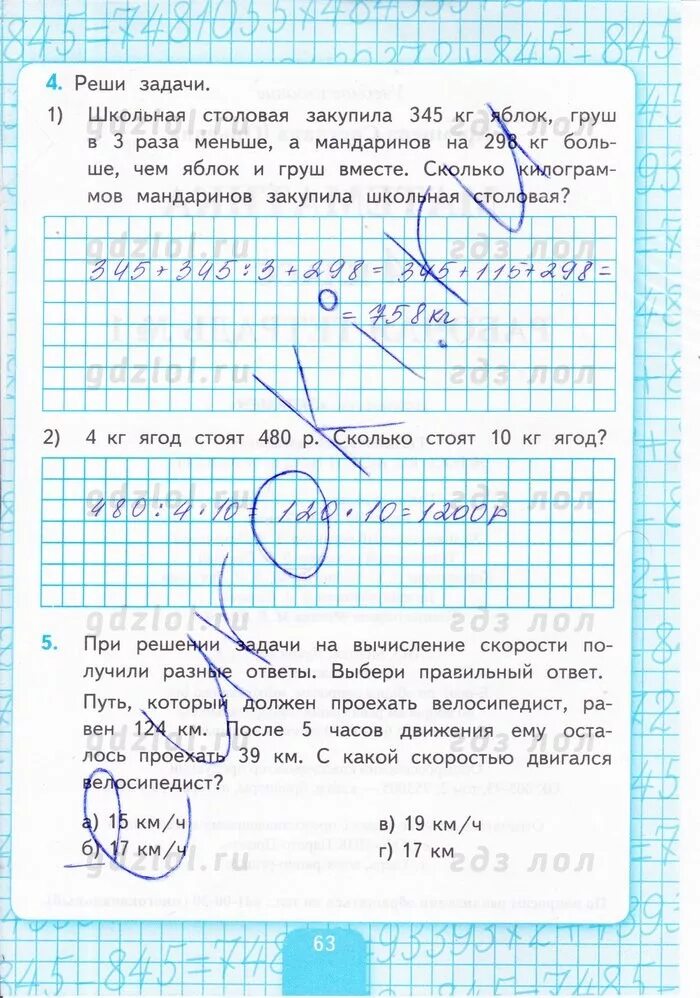 4. Реши задачи.
1) Школьная столовая закупила 345 кг яблок, груш
в 3 раза меньше, а мандаринов на 298 кг боль-
ше, чем яблок и груш вместе. Сколько килограм-
мов мандаринов закупила школьная столовая?
345 + 345 : 3 + 298 = 345 + 115 + 298 =
= 758 кг
2) 4 кг ягод стоят 480 р. Сколько стоят 10 кг ягод?
480 : 4 · 10 = 120 · 10 = 1200 р
5. При решении задачи на вычисление скорости по-
лучили разные ответы. Выбери правильный ответ.
Путь, который должен проехать велосипедист, ра-
вен 124 км. После 5 часов движения ему оста-
лось проехать 39 км. С какой скоростью двигался
велосипедист?
а) 15 км/ч в) 19 км/ч
б) 17 км/ч г) 17 км
63
gdzlol.ru гдз лол
gdzlol.ru гдз лол
gdzlol.ru гдз лол
gdzlol.ru гдз лол
gdzlol.ru гдз лол
gdzlol.ru гдз лол
gdzlol.ru гдз лол